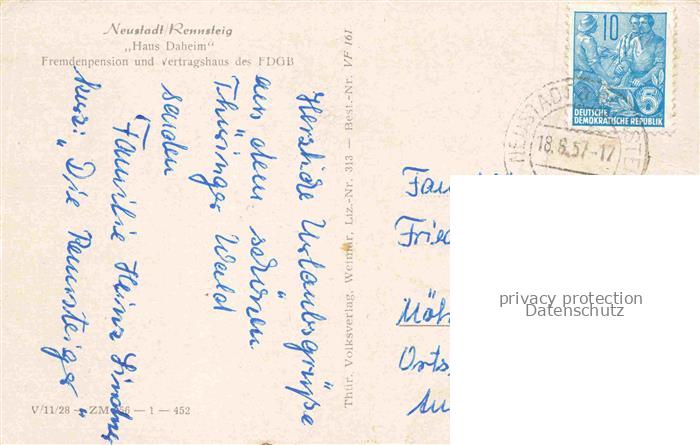 Neustadt/Rennsteig
„Haus Daheim"
Fremdenpension und Vertragshaus des FDGB
Herzliche Urlaubsgrüße
aus dem schönen
Thüringer Wald
senden
Familie Heinz
kurz: „Die Rennsteiger"
Thür. Volksverlag, Weimar, Liz.-Nr. 313 — Best.-Nr. VF 161
V/11/28 — ZM — 1 — 452
10
DEUTSCHE
DEMOKRATISCHE REPUBLIK
5
18.6.57-17
Fam
Fried
Orts
privacy protection
Datenschutz